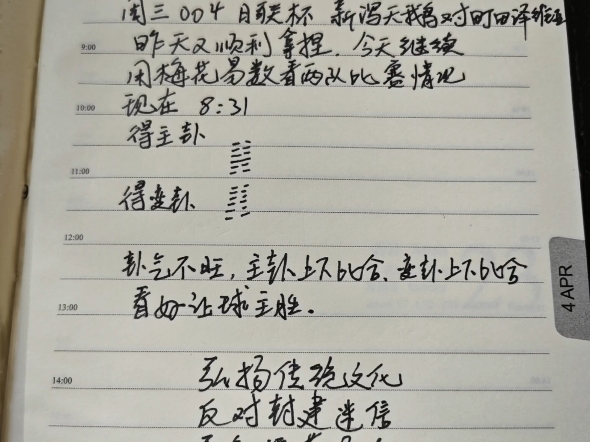 周三004 日联杯 新泻天鹅对町田泽维亚
9:00
昨天又顺利拿捏,今天继续
用梅花易数看两队比赛情况
10:00
现在 8:31
得主卦
11:00
得变卦
12:00
卦气不旺,主卦上下比合,变卦上下比合
看好让球主胜。
13:00
4 APR
14:00
弘扬传统文化
反对封建迷信